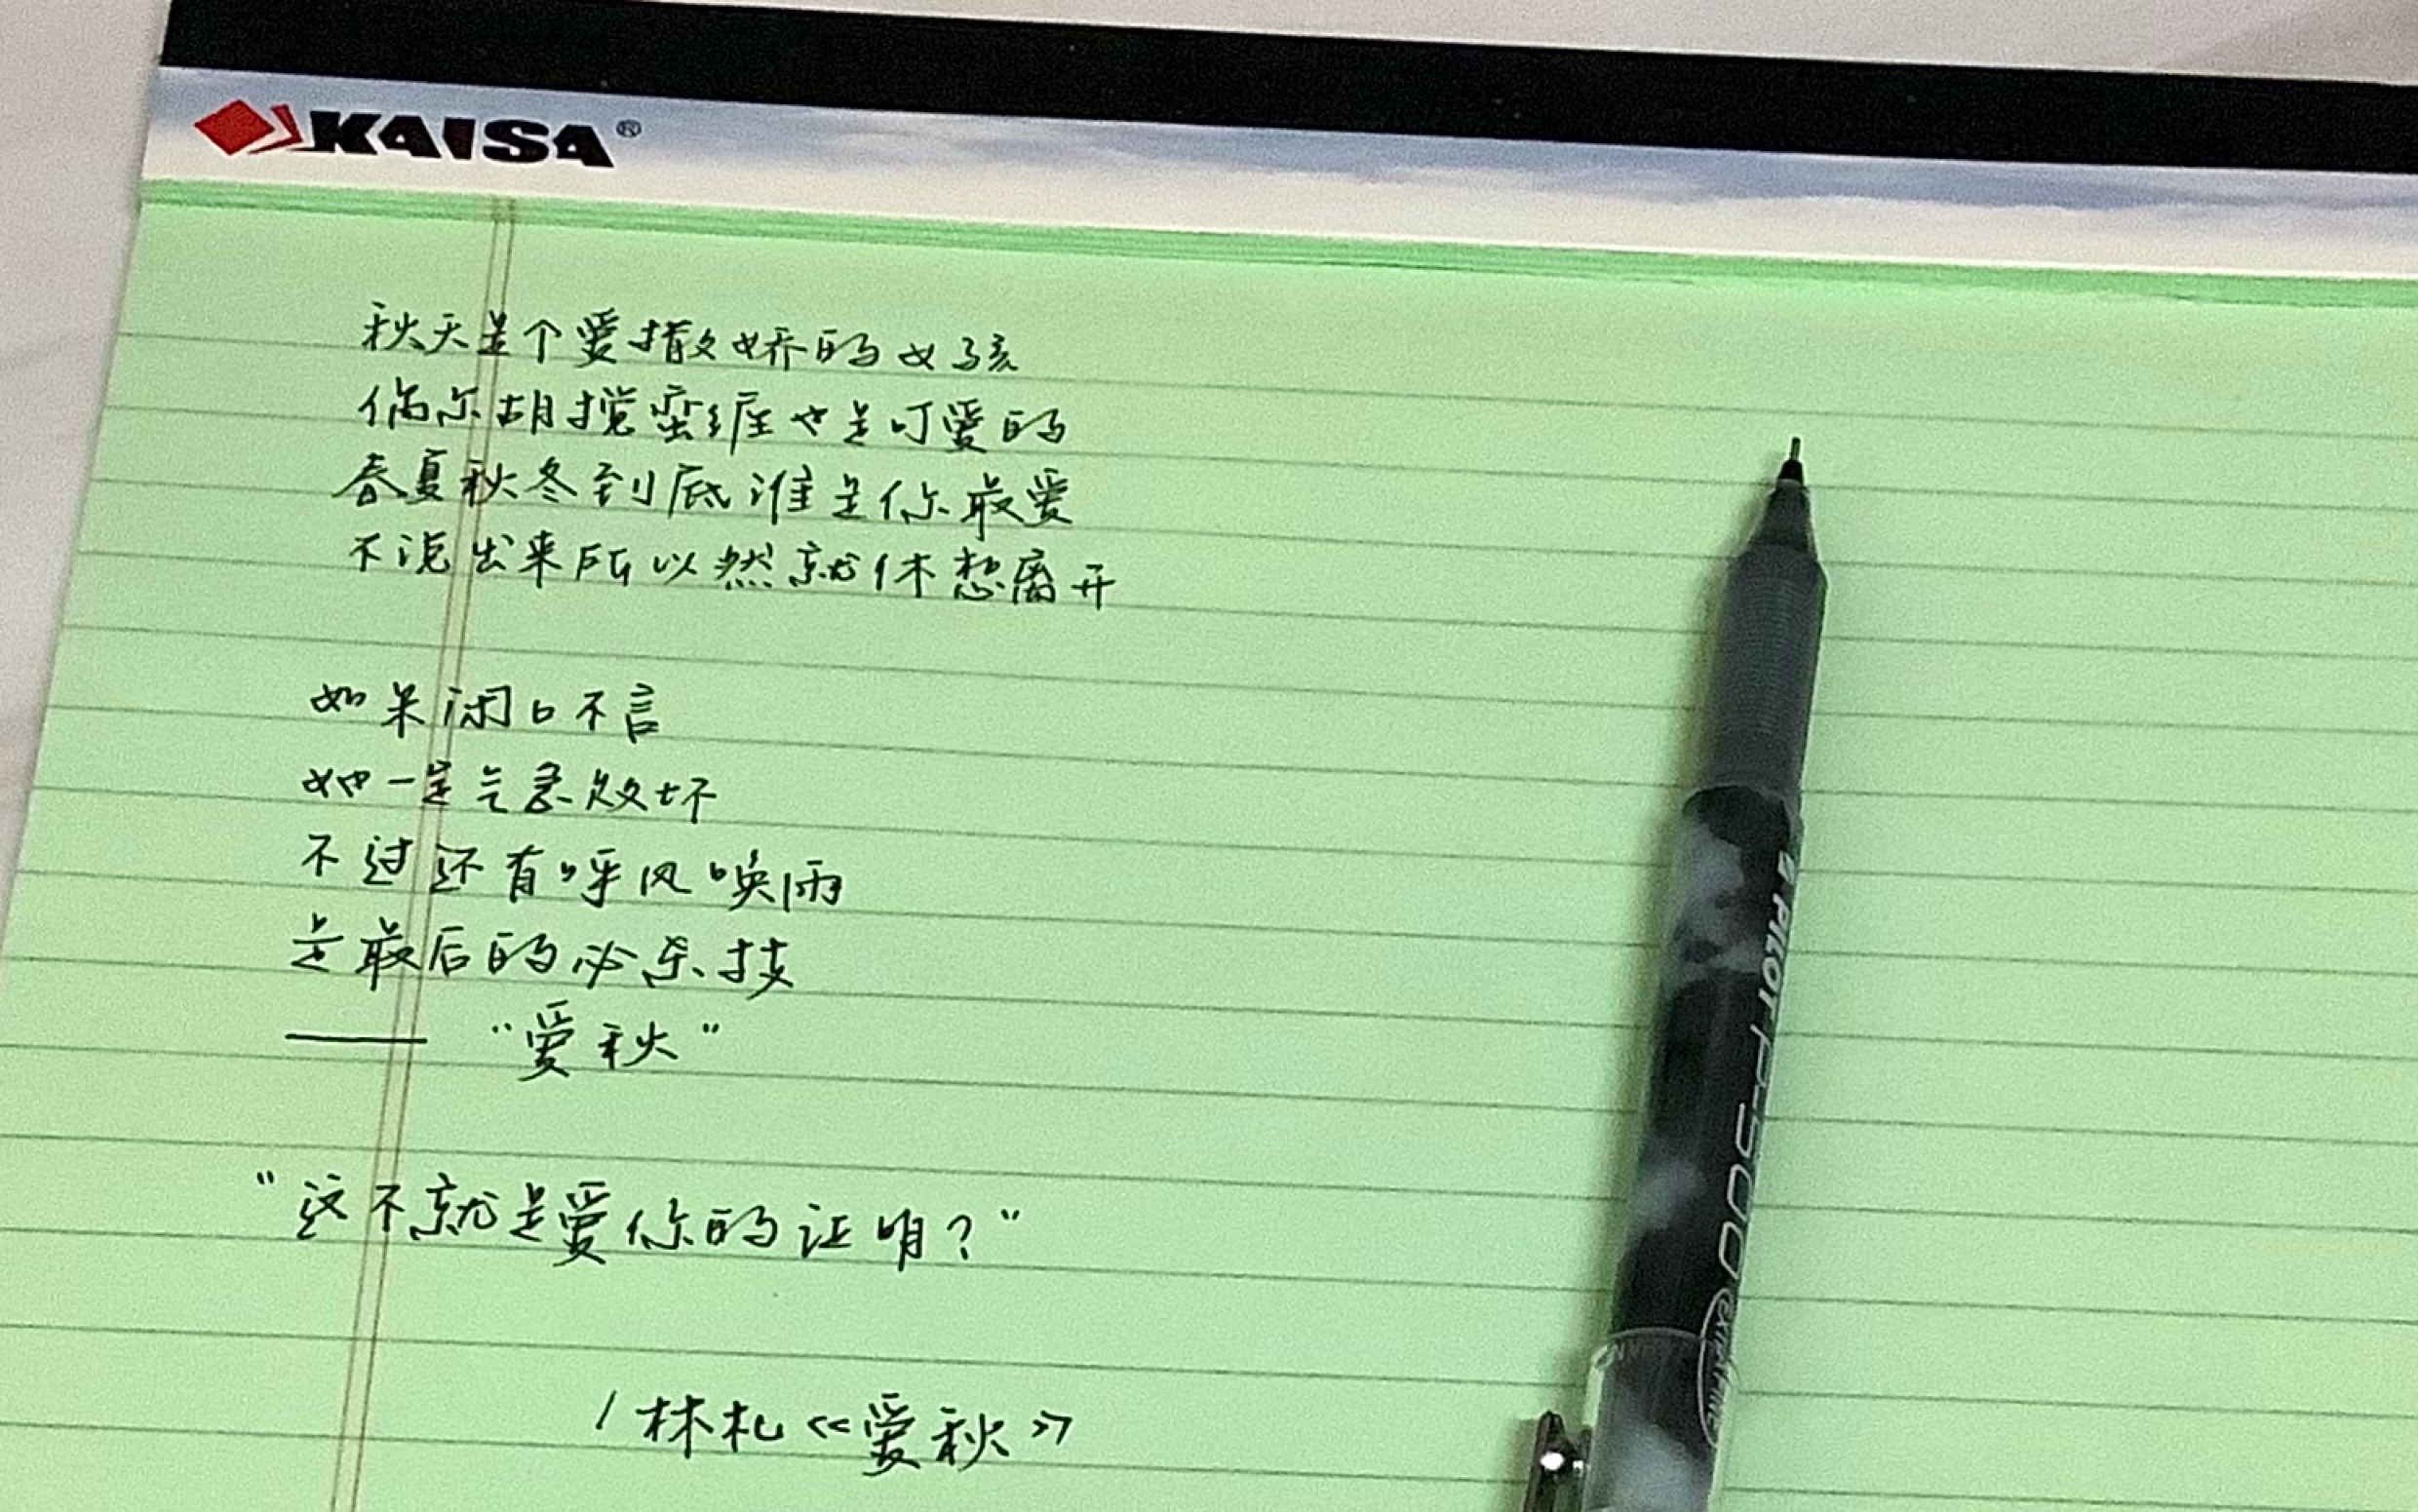 KAISA®
秋天是个爱撒娇的女孩
偶尔胡搅蛮缠也是可爱的
春夏秋冬到底谁是你最爱
不说出来所以然就休想离开
如果闭口不言
她一定气急败坏
不过还有呼风唤雨
是最后的必杀技
—— “爱秋”
“这不就是爱你的证明？”
/ 林札《爱秋》
PILOT P-500 EXTRA FINE